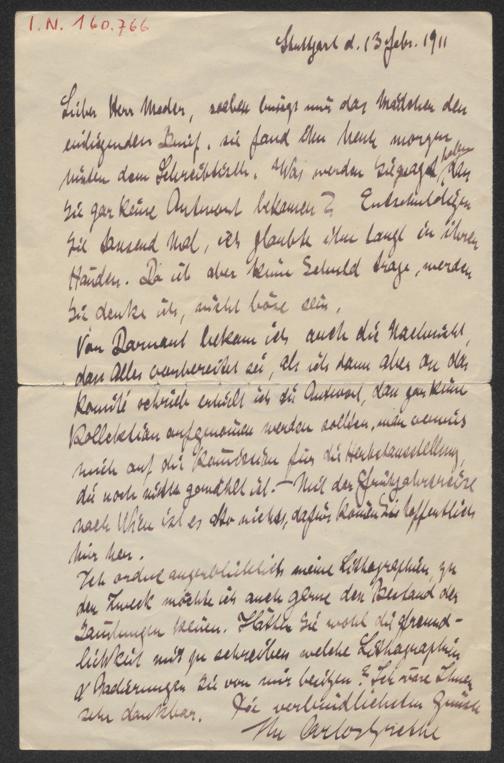 I.N. 160.766
Stuttgart d. 13 Febr. 1911
Lieber Herr Meder, soeben bringt mir das Mädchen den
einliegenden Brief, sie fand ihn heute morgen
hinter dem Schreibtisch. Was werden Sie gesagt haben, dass
Sie gar keine Antwort bekamen? Entschuldigen
Sie tausend Mal, ich glaubte ihn lange in ihren
Händen. Da ich aber keine Schuld trage, werden
Sie denke ich, nicht böse sein.
Von Darnaut bekam ich auch die Nachricht,
dass Alles vorbereitet sei, als ich dann aber an das
Komité schrieb erhielt ich die Antwort, dass gar keine
Kollektion aufgenommen werden sollten, man verwies
mich auf die für die Herbstausstellung,
die noch nicht gewählt ist. - Mit der Frühjahrsreise
nach Wien ist es also nichts, dafür kommen Sie hoffentlich
hier her.
Ich ordne augenblicklich meine Lithographien, zu
dem Zweck möchte ich auch gerne den Bestand der
Sammlungen . Hätten Sie wohl die Freund-
lichkeit mir zu schreiben welche Lithographien
& Radierungen Sie von mir besitzen? Ich wäre Ihnen
sehr dankbar. Die verbindlichsten Grüsse
Ihr Carlos Grethe